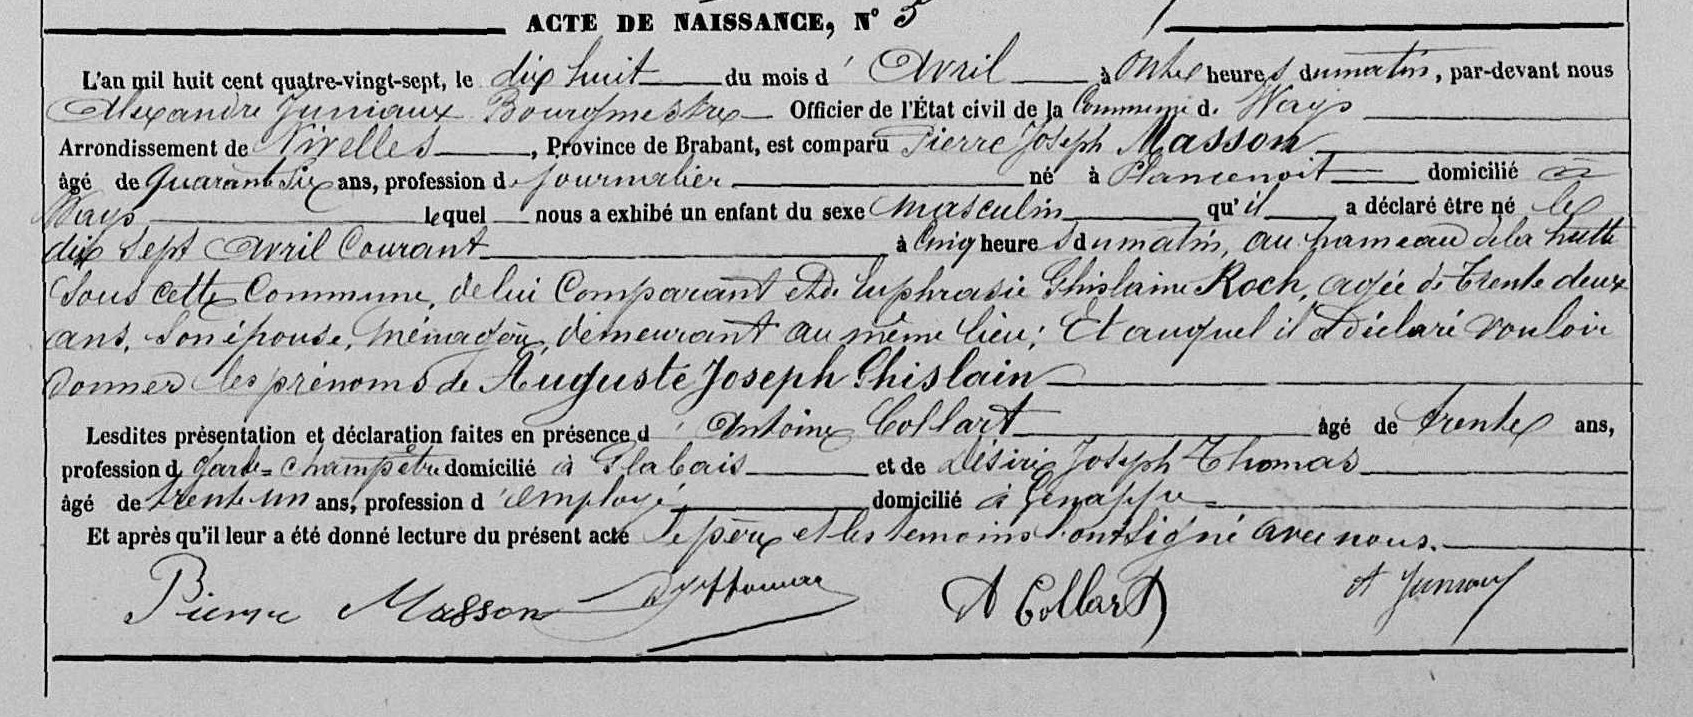 ACTE DE NAISSANCE, N° 5
L'an mil huit cent quatre-vingt-sept, le dix huit du mois d' Avril à Onze heures du matin, par-devant nous
Alexandre Juniaux Bourgmestre Officier de l'État civil de la Commune de Ways
Arrondissement de Nivelles, Province de Brabant, est comparu Pierre Joseph Masson
âgé de quarante six ans, profession de journalier né à Plancenoit domicilié à
Ways lequel nous a exhibé un enfant du sexe masculin qu'il a déclaré être né le
dix sept Avril Courant à Cinq heures du matin, au hameau de la hutte
Sous cette Commune, de lui Comparant et de Euphrasie Ghislaine Roch, agée de trente deux
ans, Son épouse, ménagère, demeurant au même lieu; Et auquel il a déclaré vouloir
donner les prénoms de Auguste Joseph Ghislain
Lesdites présentation et déclaration faites en présence d' Antoine Collart âgé de trente ans,
profession de garde-champêtre domicilié à Glabais et de Désiré Joseph Thomas
âgé de trente un ans, profession d'employé domicilié à Genappe
Et après qu'il leur a été donné lecture du présent acte le père et les témoins l'ont Signé avec nous.
Pierre Masson DJThomas A Collart A Juniaux